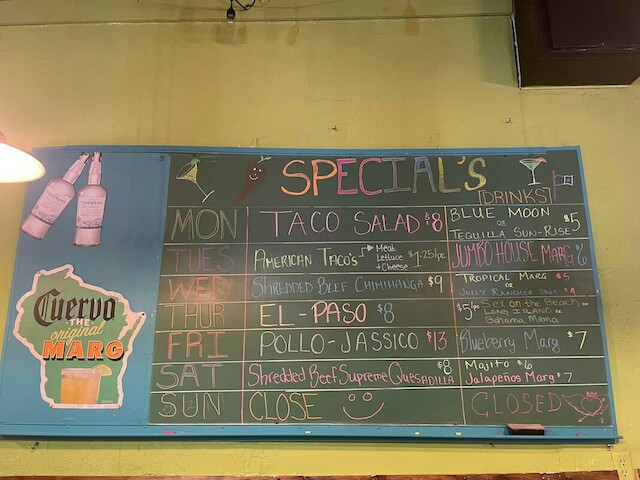 SPECIAL'S
[DRINKS]
MON TACO SALAD $8 BLUE MOON OR TEQUILLA SUN-RISE $5
TUES AMERICAN TACO'S Meat Lettuce + Cheese $1.25/pc JUMBO HOUSE MARG $6
WED SHREDDED BEEF CHIMIHANGA $9 TROPICAL MARG $5 OR JOLLY RANCHER SHOT $4
THUR EL-PASO $8 $5/pc SEX on the BEACH or LONG ISLAND or Bahama Mama
FRI POLLO-JASSICO $13 Blueberry Marg $7
SAT Shredded Beef Supreme Quesadilla $8 Mojito $6 Jalapeños Marg $7
SUN CLOSE CLOSED
Cuervo
THE
original
MARG